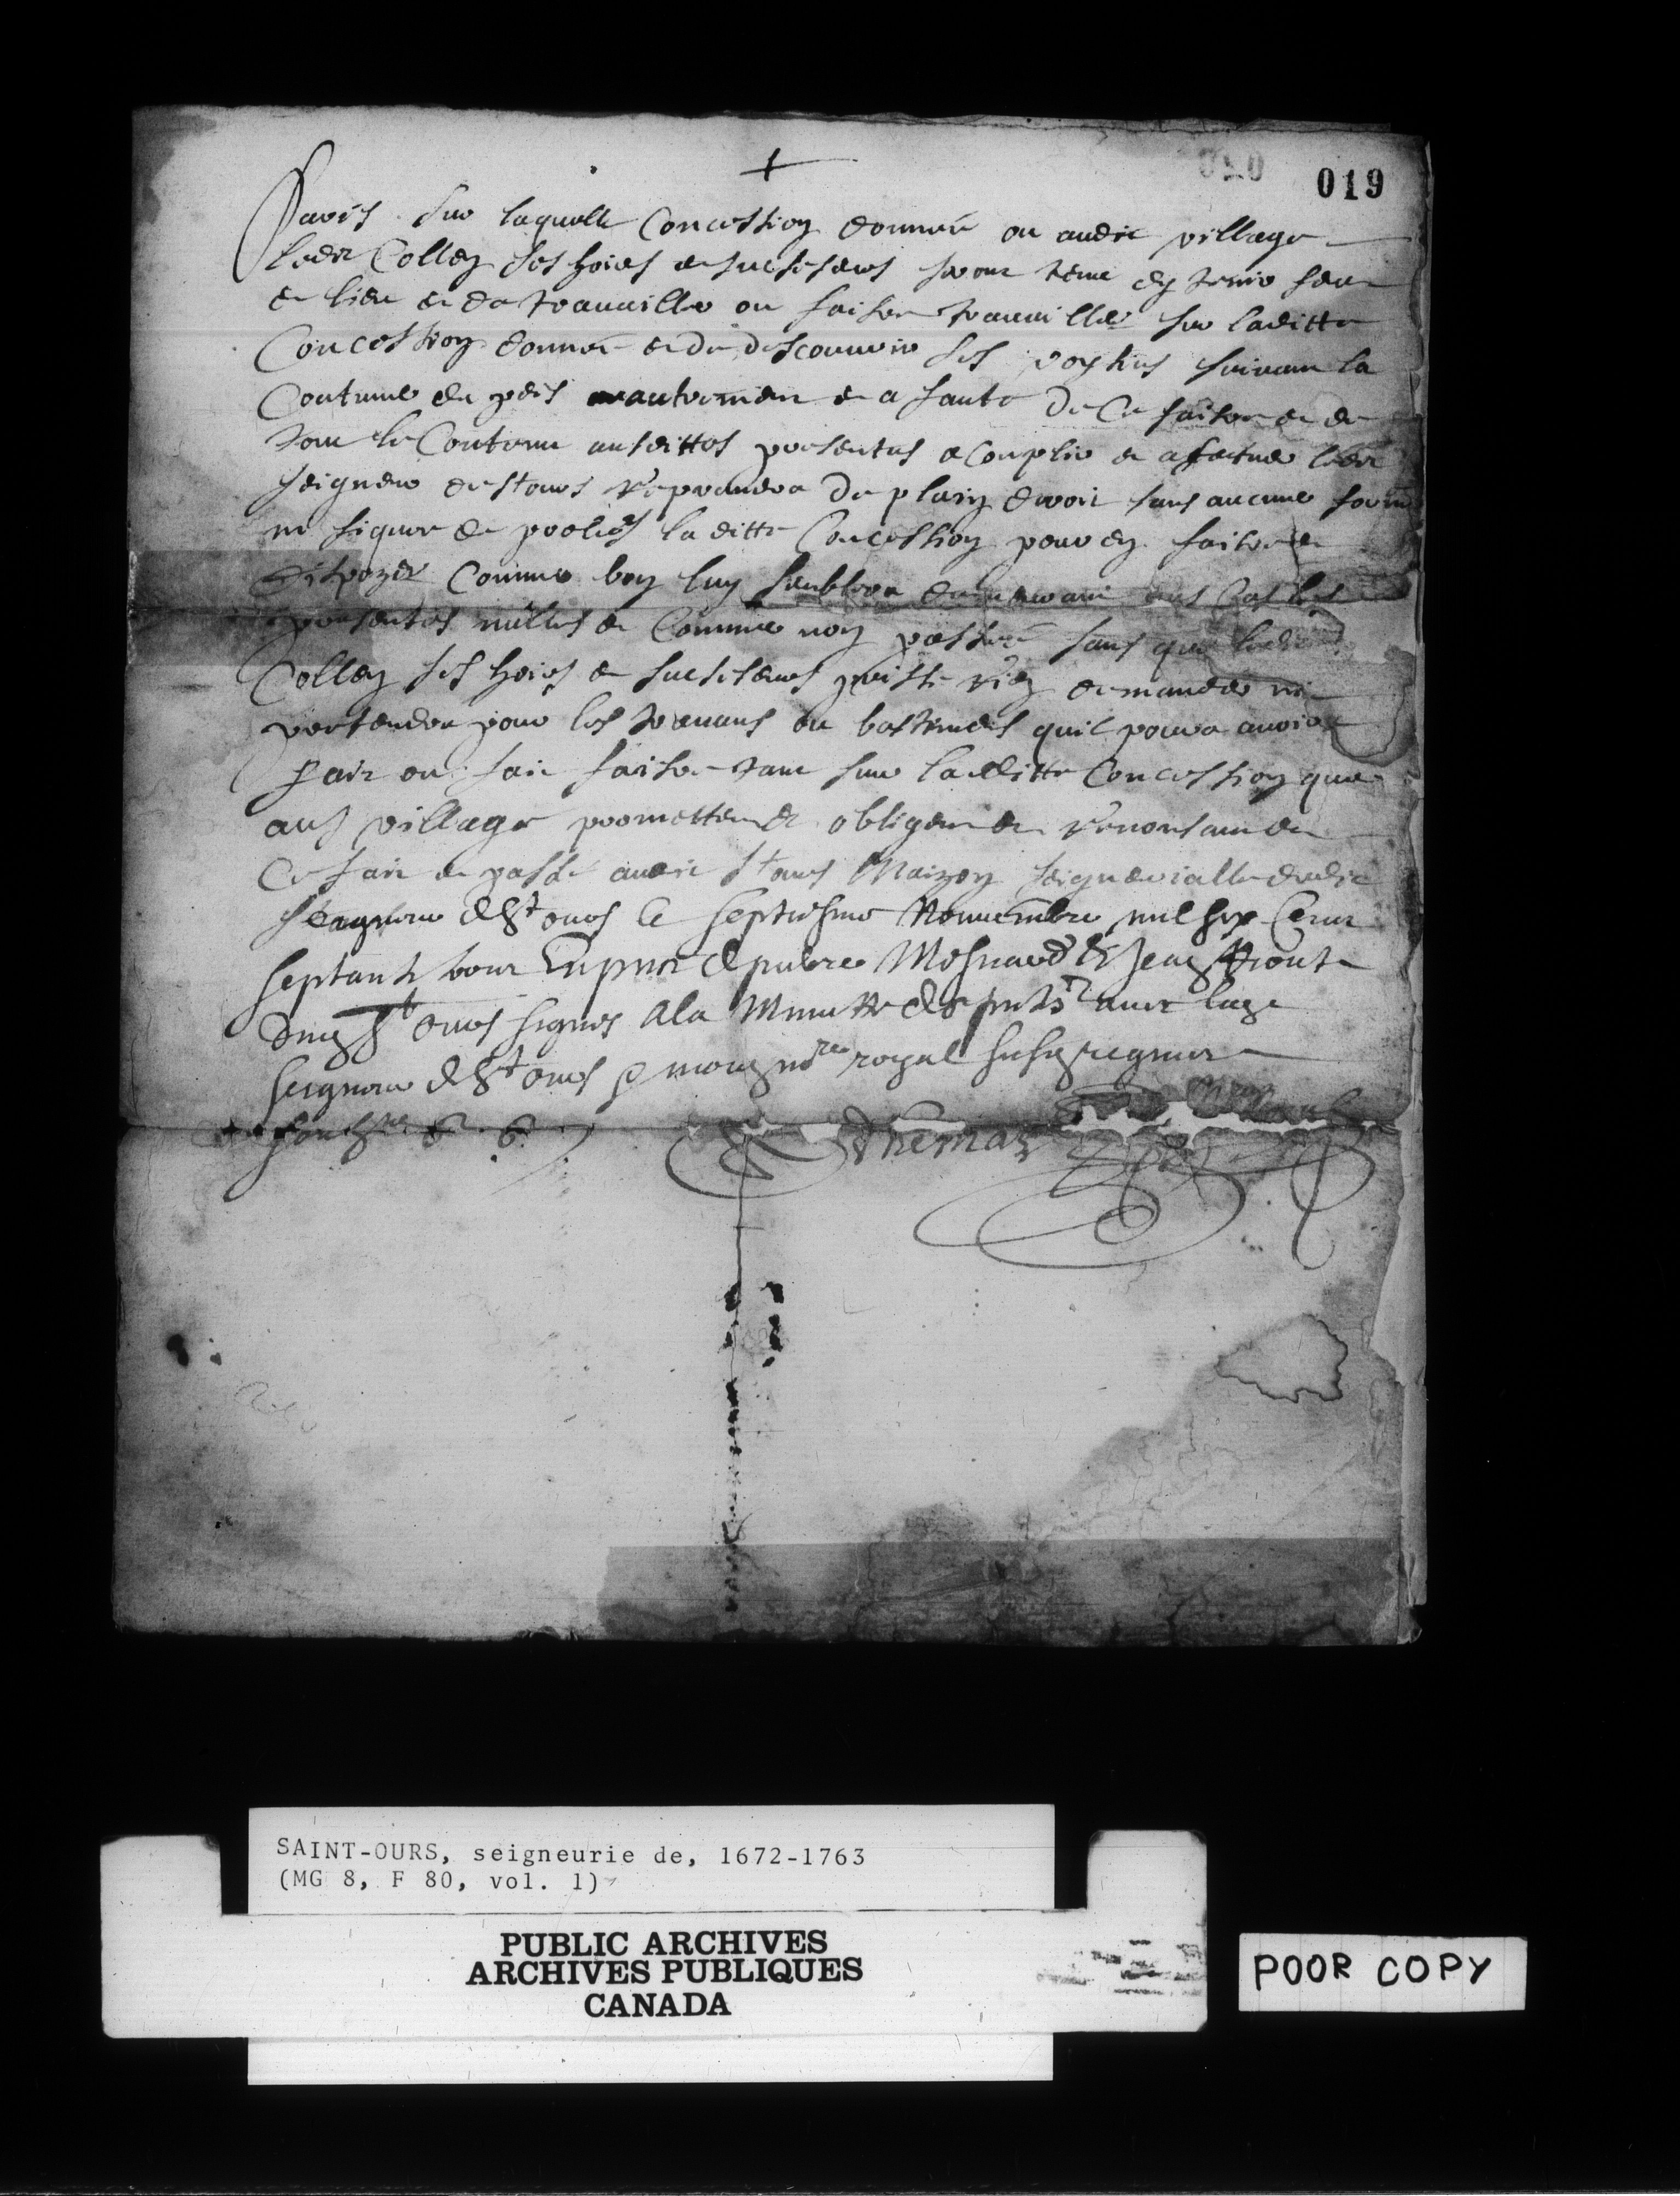 019
Paris sur laquelle Concession donnée ou audit village
ledit Collen ses hoirs et successeurs seront tenu dy tenir feu
et lieu et da travailler ou faire travailler sur laditte
Concession donnée et de descouvrir ses voysins suivant la
Coutume du peis autrement et a faute De Ce faire et de
tout le Contenu ausdittes presentes acomplir et afectuer ledit
seigneur de st ours reprandra de plain droit sans aucune forme
ne figure de proces la ditte Concession pour en faire et
dispozer Comme bon luy semblera demeurant aus Cas les
presentes nulles et Comme non passée sans que ledit
Collen ses hoirs et successeurs puisse rien demander ni
pertendre pour les travaus ou bastimens quil poura avoir
fait ou fait faire tant sur laditte Concession que
aus village promettent obligent et renonsant et
Ce fait et passé audit st ours Maizon seigneurialle dudit
seigneur de St ours le septiesme Novembre mil six Cent
septante trois En pnce de pierre Mesnard & Jean
St ours signes A la Minutte des pntes avec ledit
seigneur de St ours & moy nore royal soussigne
Themoz
SAINT-OURS, seigneurie de, 1672-1763
(MG 8, F 80, vol. 1)
PUBLIC ARCHIVES
ARCHIVES PUBLIQUES
CANADA
POOR COPY